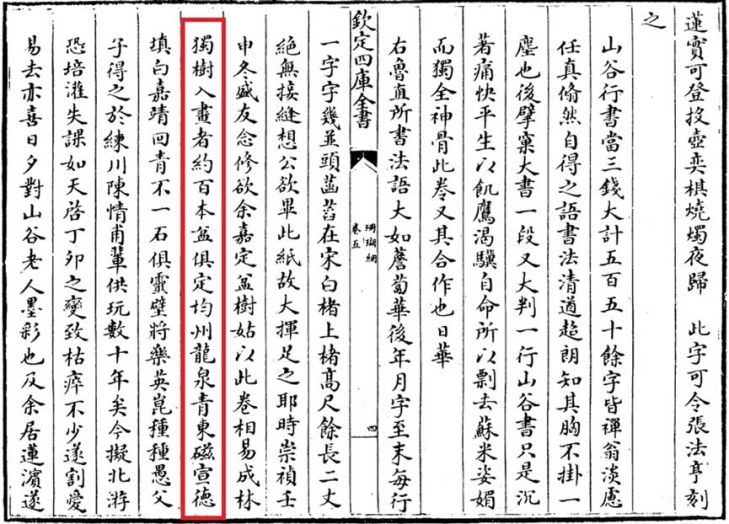 蓮實可登投壺奕棋燒燭夜歸 此字可令張法亨刻
之
山谷行書當三錢大計五百五十餘字皆禪翁淡慮
任真翛然自得之語書法清遒超朗知其胸不掛一
塵也後擘窠大書一段又大判一行山谷書只是沉
著痛快平生以飢鷹渴驥自命所以剽去蘇米姿媚
而獨全神骨此卷又其合作也日華
右魯直所書法語大如薝蔔華後年月字至末每行
欽定四庫全書
珊瑚網
卷五
四
一字字幾並頭菡萏在宋白楮上楮高尺餘長二丈
絶無接縫想公欲畢此紙故大揮足之耶時崇禎壬
申冬盛友念修欲余嘉定盆樹姑以此卷相易成林
獨樹入畫者約百本盆俱定均州龍泉青東磁宣德
填白嘉靖回青不一石俱靈壁將樂英崑種種愚父
子得之於練川陳情甫輩供玩數十年矣今擬北游
恐培灌失課如天啓丁卯之變致枯瘁不少遂割愛
易去亦喜日夕對山谷老人墨彩也及余居蓮濱遂